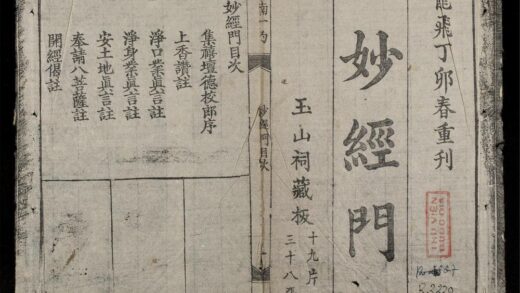 龍飛丁卯春重刊
妙經門
玉山祠藏板
十九片
三十八張
妙經門目次
妙經門目次
集禧壇德校郎序
上香讚註
淨口業眞言註
淨身業眞言註
安土地眞言註
奉請八菩薩註
開經偈註